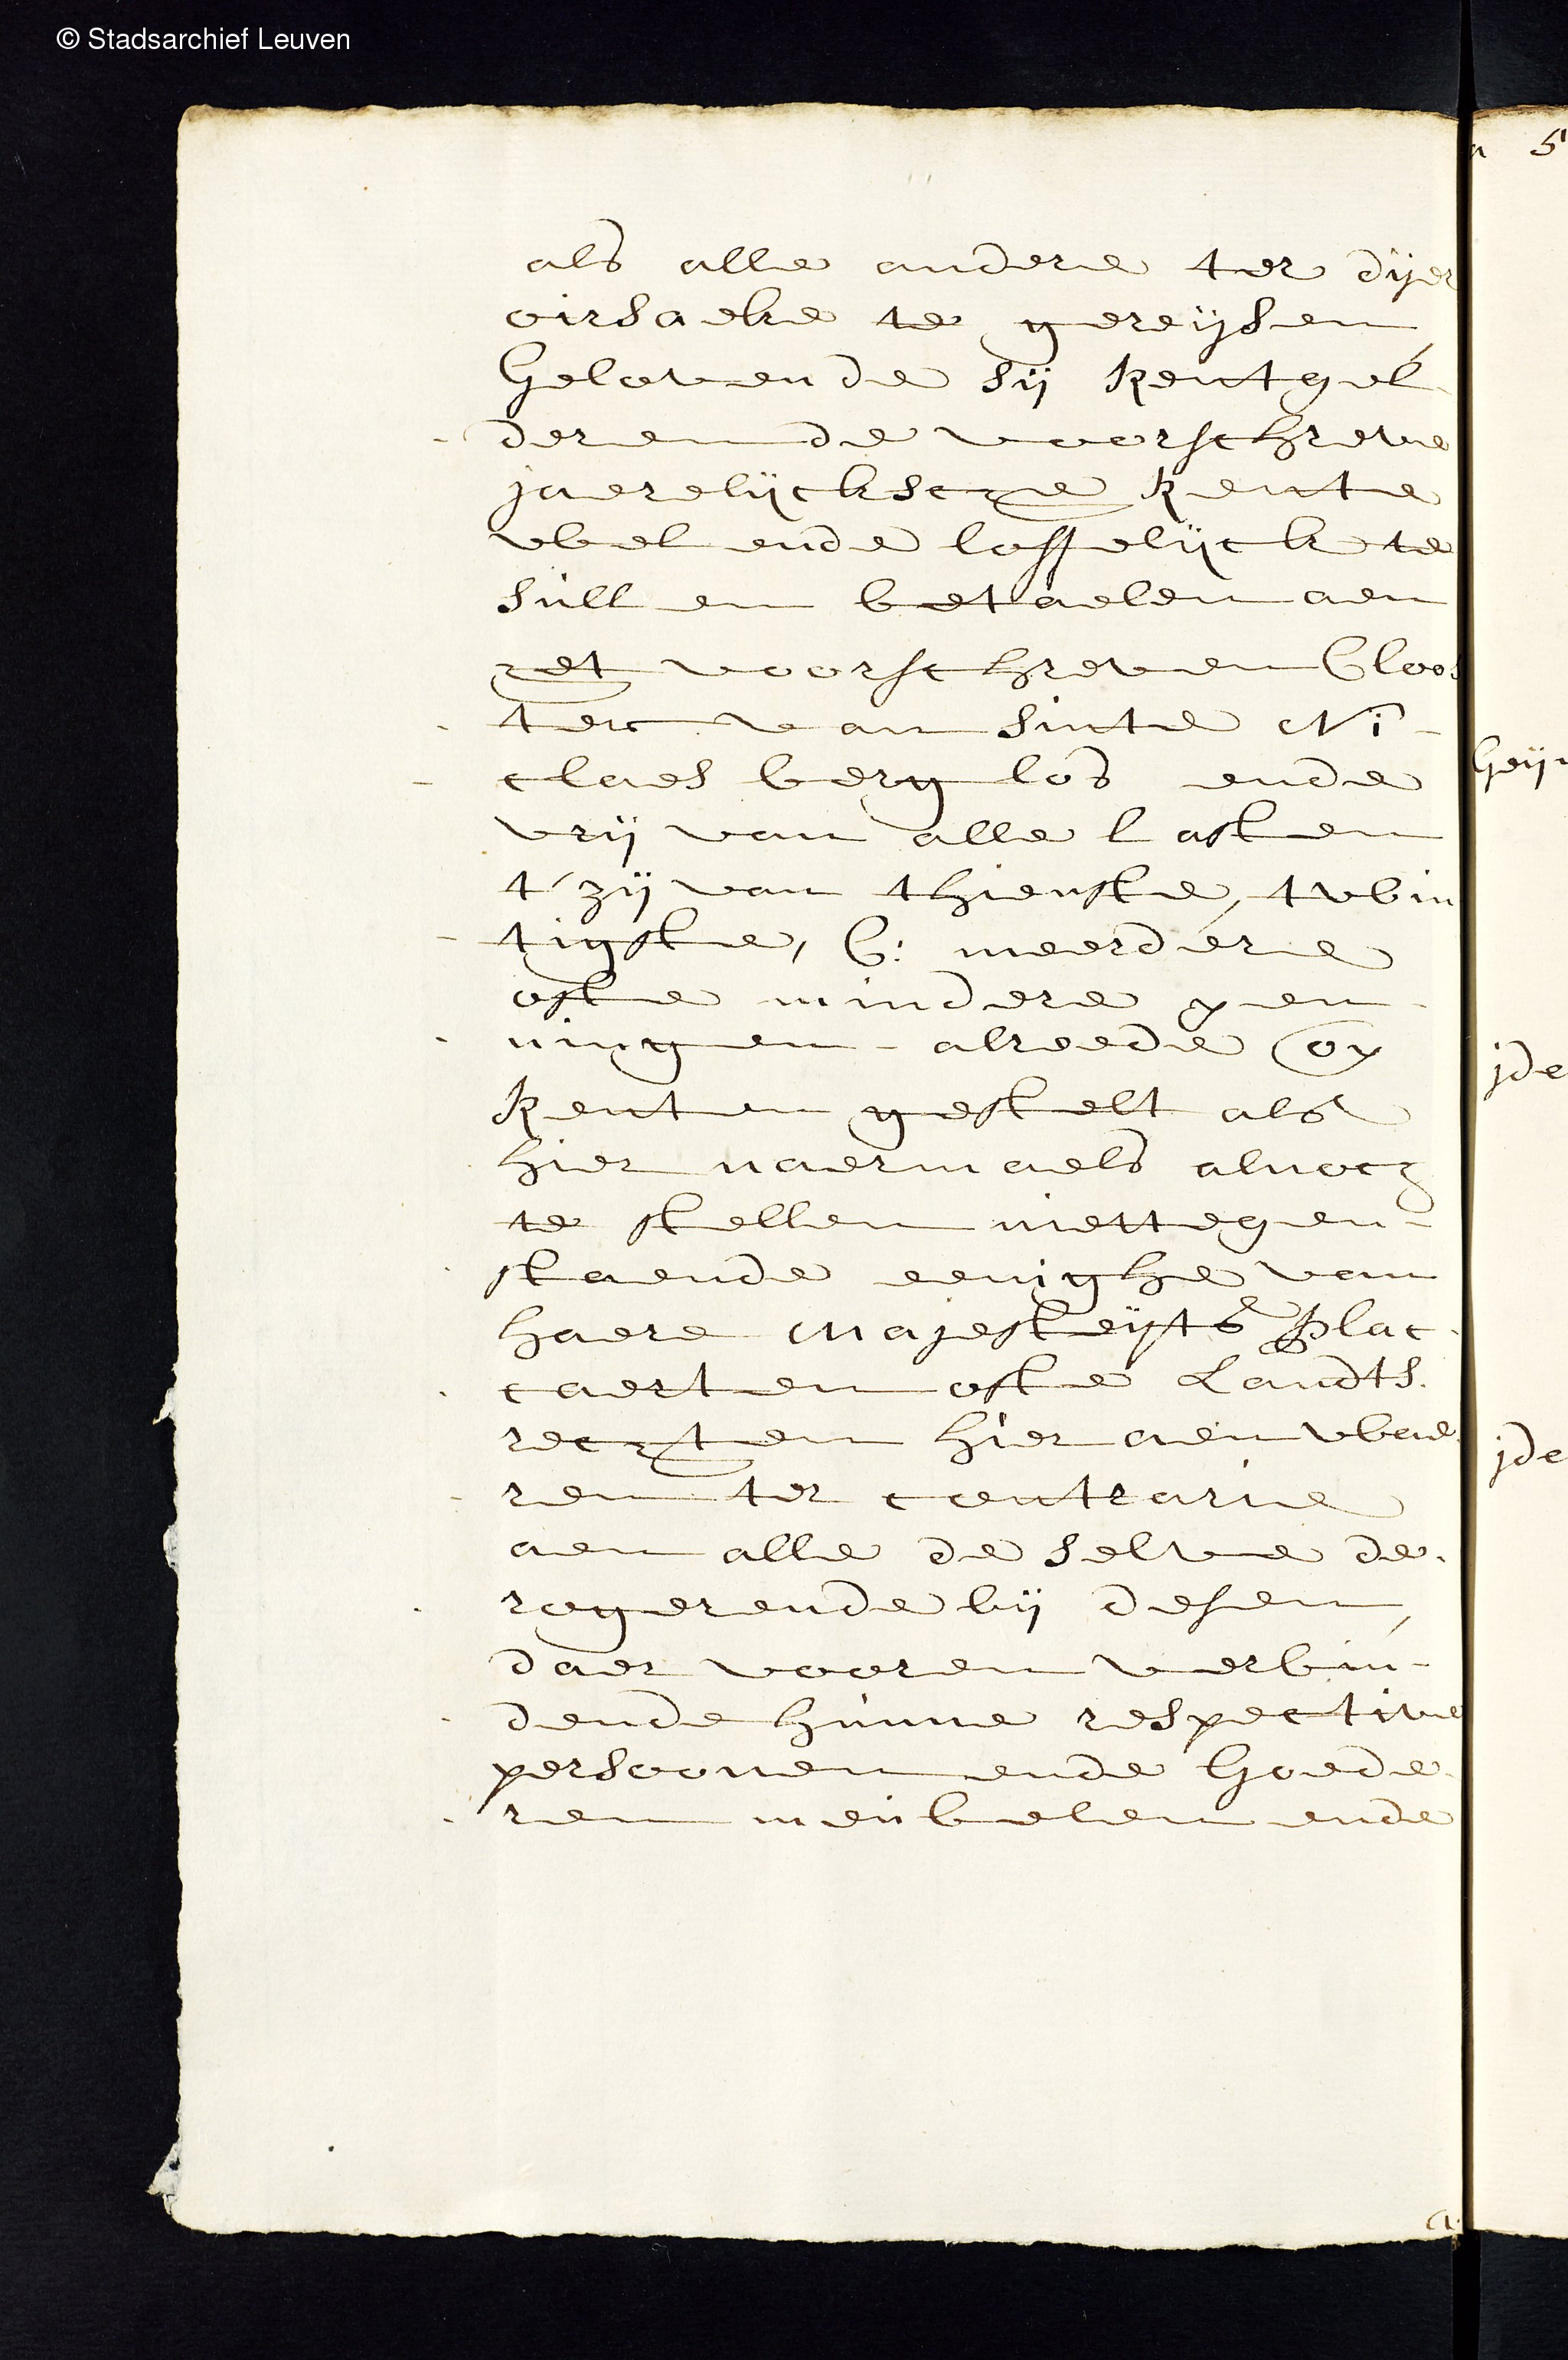 © Stadsarchief Leuven
als alle andere ter dijer
oirsaeke te gereijsen,
Gelovende sij Rentgel-
deren de voorschreve
jaerelijcksche Rente
wel ende loffelijck te
sullen betaelen aen
het voorschreven Cloos
ter van sinte Ni-
claes bergh los ende
vrij van alle lasten
t'zij van thienste, twin
tigste, C: meerdere
ofte mindere pen-
ningen alreede op
Renten gestelt als
hier naermaels alnoch
te stellen niettegen-
staende eenighe van
haere Majesteijts Plac-
caerten ofte Landts.
rechten hier aen wae-
ren ter contrarie
aen alle de selve de-
rogerende bij desen,
daer vooren verbin-
dende hunne respective
persoonen ende Goede-
ren meubelen ende
5
jde
jde